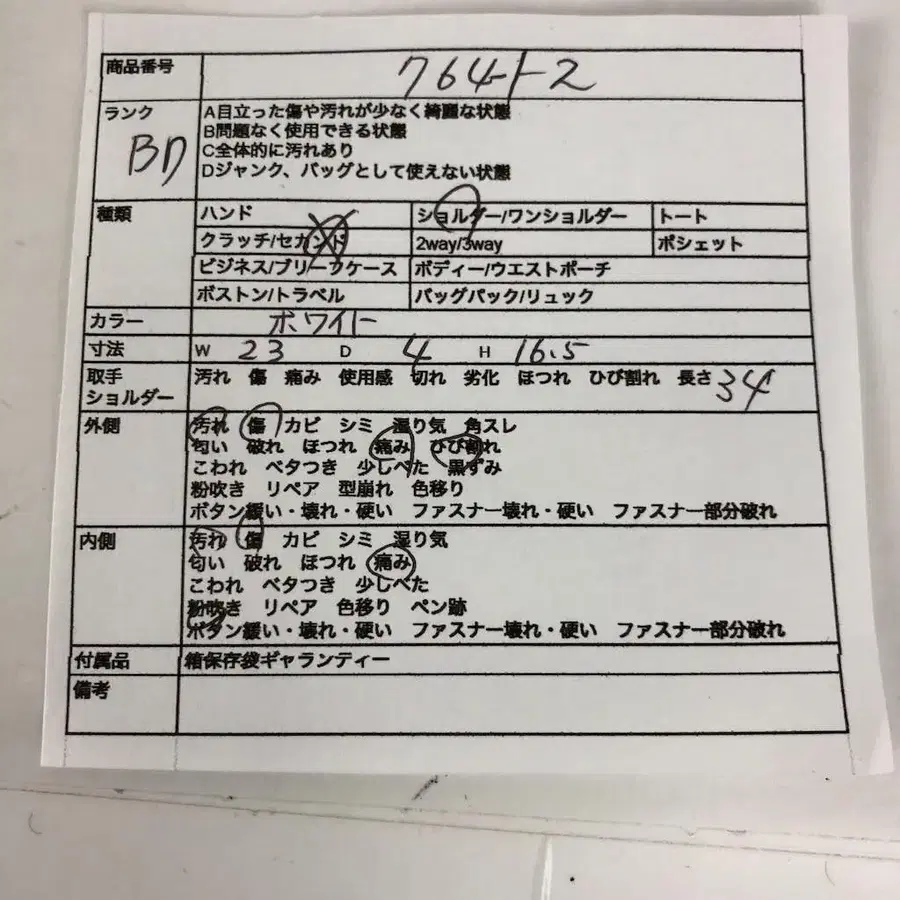 商品番号 764ト2
ランク BD
A目立った傷や汚れが少なく綺麗な状態
B問題なく使用できる状態
C全体的に汚れあり
Dジャンク、バッグとして使えない状態
種類 ハンド ショルダー/ワンショルダー トート
クラッチ/セカンド 2way/3way ポシェット
ビジネス/ブリーフケース ボディー/ウエストポーチ
ボストン/トラベル バッグパック/リュック
カラー ホワイト
寸法 W 23 D 4 H 16.5
取手 汚れ 傷 痛み 使用感 切れ 劣化 ほつれ ひび割れ 長さ 34
ショルダー
外側 汚れ 傷 カビ シミ 湿り気 角スレ
匂い 破れ ほつれ 痛み ひび割れ
こわれ ベタつき 少しべた 黒ずみ
粉吹き リペア 型崩れ 色移り
ボタン緩い・壊れ・硬い ファスナー壊れ・硬い ファスナー部分破れ
内側 汚れ 傷 カビ シミ 湿り気
匂い 破れ ほつれ 痛み
こわれ ベタつき 少しべた
粉吹き リペア 色移り ペン跡
ボタン緩い・壊れ・硬い ファスナー壊れ・硬い ファスナー部分破れ
付属品 箱保存袋ギャランティー
備考